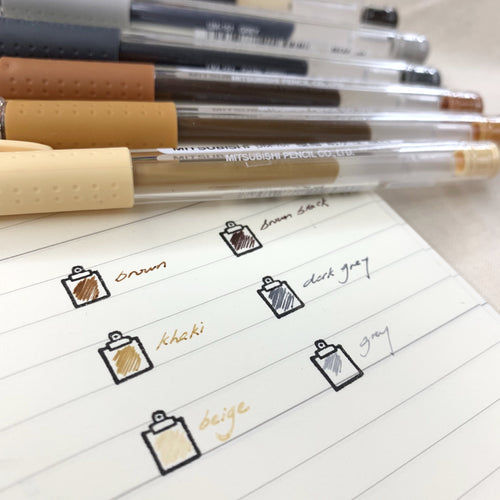 MITSUBISHI PENCIL CO., LTD.
brown
brown black
khaki
dark grey
beige
grey